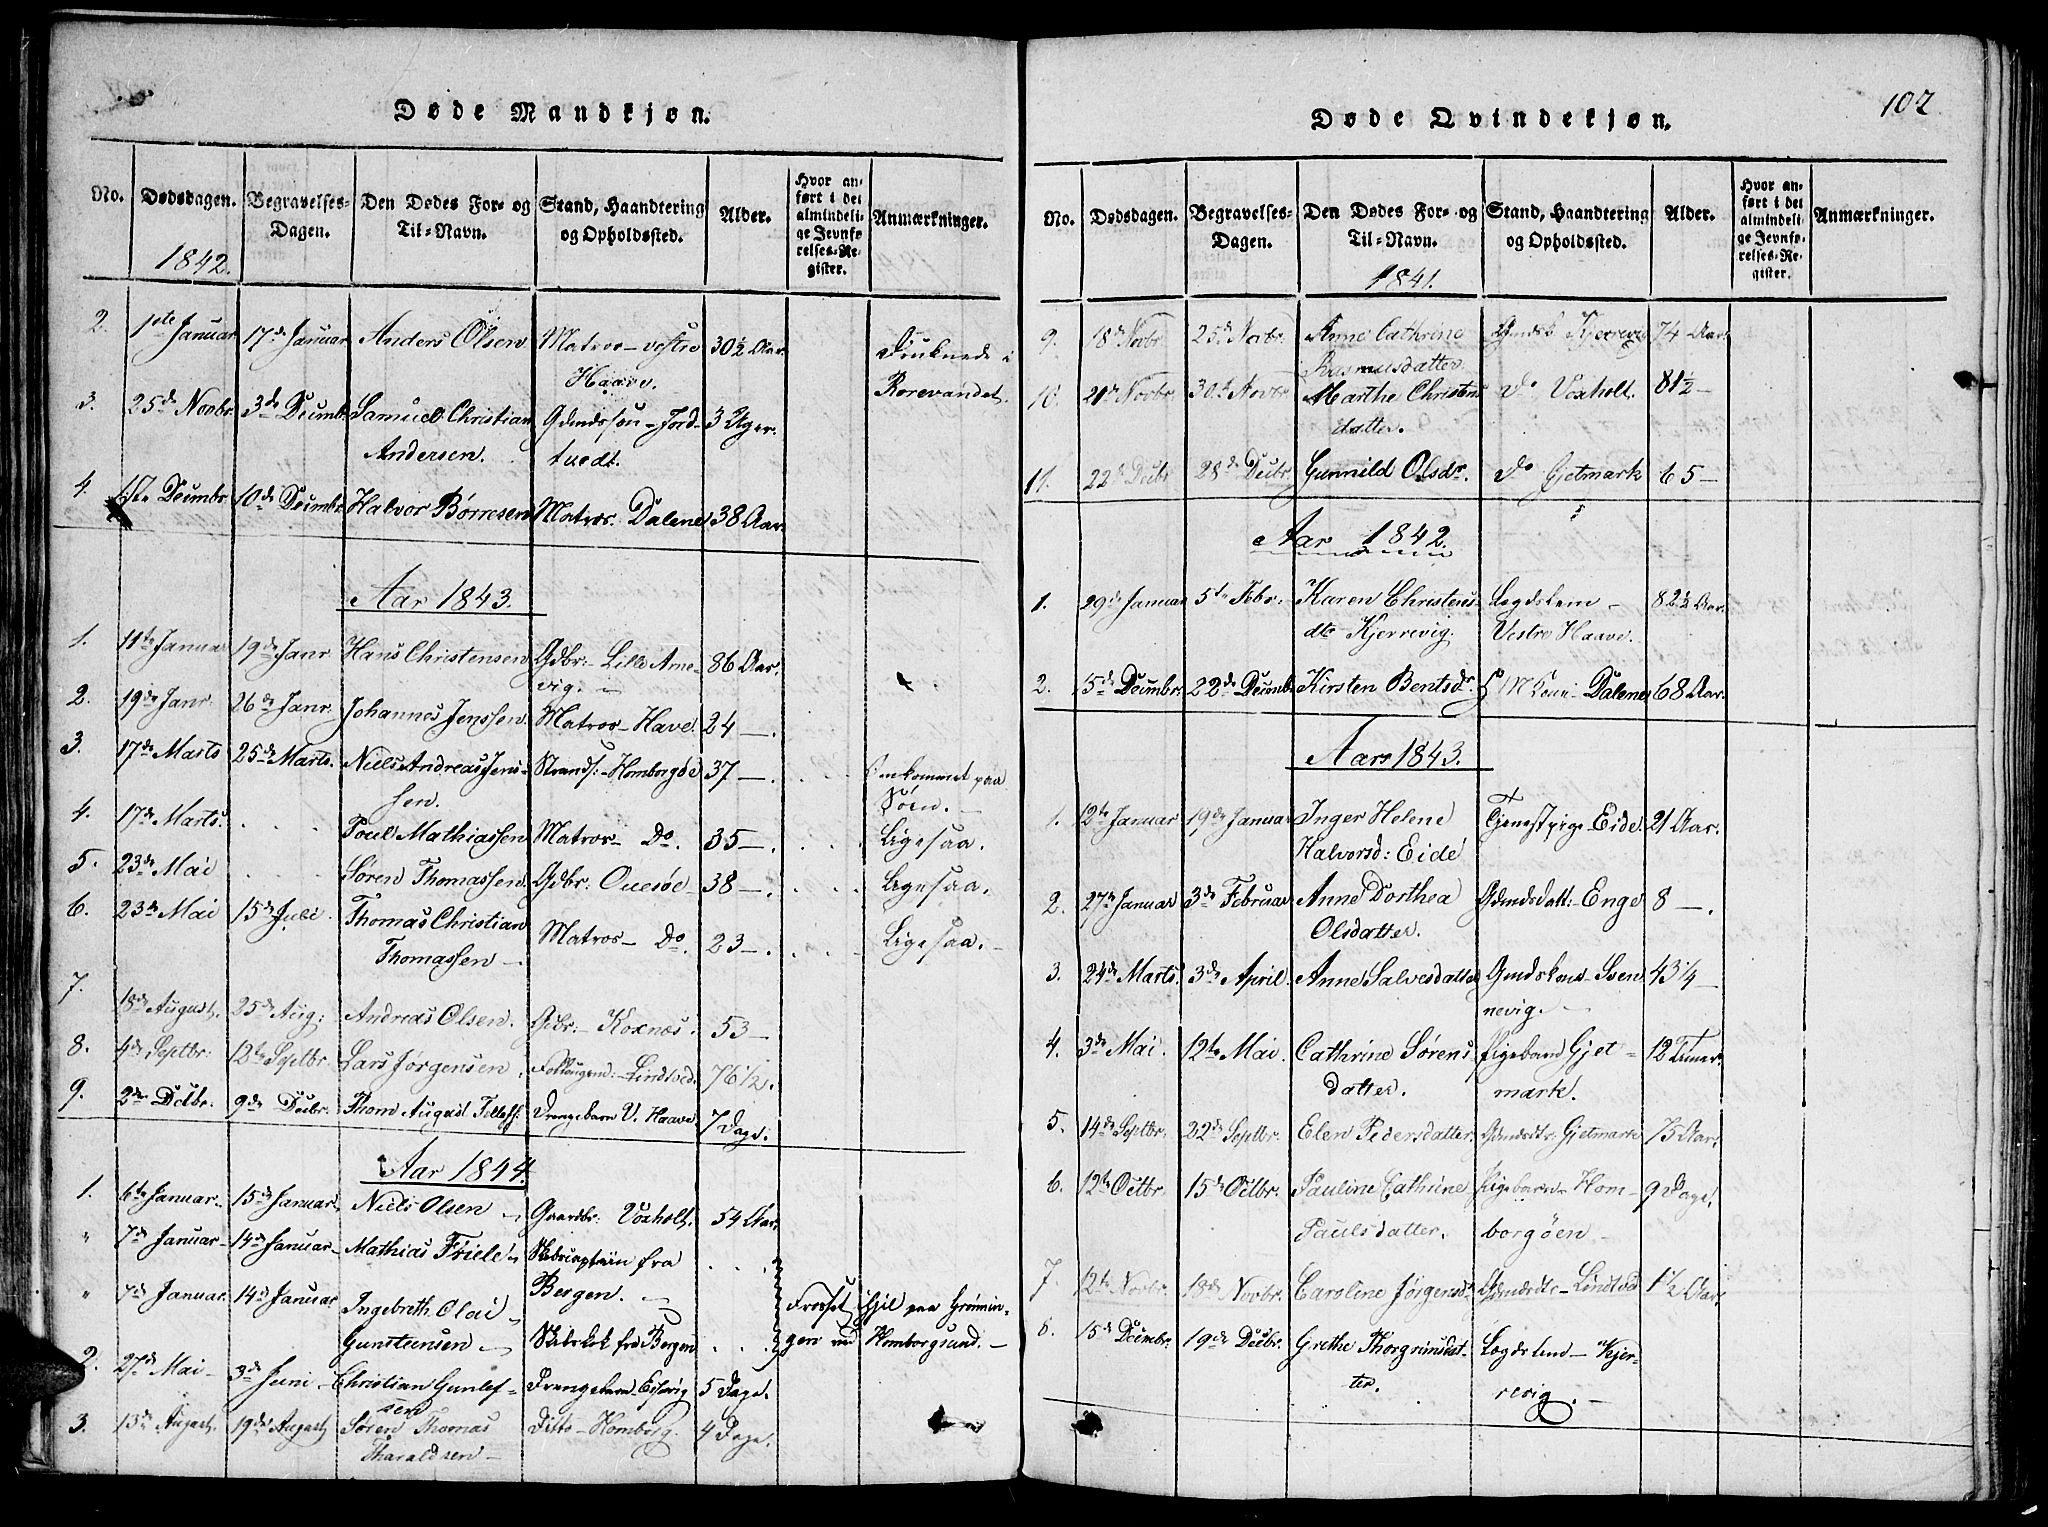 Døde Mandkjøn.
No. Dødsdagen. Begravelses-Dagen. Den Dødes For- og Til-Navn. Stand, Haandtering og Opholdssted. Alder. Hvor anført i det almindelige Jevnførelses-Register. Anmærkninger.
1842.
2. 1ste Januar 17de Januar Anders Olsen Matros - vestre Haave. 30½ Aar. Druknede i Rorevandet.
3. 25de Novbr. 3de Decmbr Samuel Christian Andersen. Gdmdssøn - Jordtuedt. 3 Uger.
4. Decmbr 10de Decmbr Halvor Børresen Matros - Dalene 38 Aar.
Aar 1843.
1. 11te Januar 19de Janr Hans Christensen Gdbr: - Lille Amevig. 86 Aar.
2. 19de Janr. 26de Janr. Johannes Jenssen Matros - Have. 24 -
3. 17de Marts 25de Marts. Niels Andreas Jenssen. Strands: - Homborgöe 37 - . Omkommet paa Søen.
4. 17de Marts. Poul Mathiassen Matros - Do. 35 - . Ligesaa.
5. 23de Mai Søren Thomassen. Gdbr: Ouesöe 38 - . Ligesaa.
6. 23de Mai 15de Juli Thomas Christian Thomassen - Matros - Do. 23 - . Ligesaa. -
7. 18de August. 25de Aug: Andreas Olsen. Gdbr: - Koxnæs. 53 -
8. 4de Septbr: 12te Septbr. Lars Jørgensen. - Lindtved. 76½.
9. 2den Decbr. 9de Decbr. Thom August Tellefs: Drengebarn V. Haave 7 Dage.
Aar 1844.
1. 6te Januar. 15de Januar. Niels Olsen Gaardbr: Voxholt. 54 Aar.
" 7de Januar - 14de Januar - Mathias Friele Skibscaptain fra Bergen.
" 7de Januar. 14de Januar Ingebreth Olai Gunsteensen Skibskok fra Bergen Frosset ihjel paa Grøningen ved Homborgsund. -
2. 27de Mai - 3de Juni - Christian Gunlefsen Drengebarn - Eisevig 5 Dage.
3. 13de August. 19de August Søren Thomas Tharaldsen - Ditto - Homborg. 4 Dage.
102
Døde Qvindekjøn.
No. Dødsdagen. Begravelses-Dagen. Den Dødes For- og Til-Navn. Stand, Haandtering og Opholdssted. Alder. Hvor anført i det almindelige Jevnførelses-Register. Anmærkninger.
1841.
9. 18de Novbr 25de Novbr. Anne Cathrine Rasmusdatter Gmdsk Kjerrevig 74 Aar.
10. 21de Novbr 30te Novbr Marthe Christensdatter. Do Voxholt. 81½ -
11. 22de Decbr 28de Decbr. Gunnild Olsdr. Do Gjetmark 65 -
Aar 1842.
1. 29de Januar 5te Febr. Karen Christensdtr Kjerrevig. Lægdslem - Vestre Haave. 82½ Aar.
2. 15de Decmbr. 22de Decmbr Kirsten Bentsdr. Dalene 68 Aar.
Aar 1843.
1. 12te Januar 19de Januar Inger Helene Halvorsd: Eide Tjenestpige - Eide. 21 Aar.
2. 27de Januar 3de Februar Anne Dorthea Olsdatter. Gdmdsdatt: - Enge 8 - .
3. 24de Marts. 3de April. Anne Salvesdatter Gmdskone - Svennevig. - 43¼ -
4. 3de Mai. 12te Mai. Cathrine Sørensdatter. Pigebarn Gjetmark. 12 Timer.
5. 14de Septbr. 22de Septbr. Elen Pedersdatter. Gdmdsdtr: Gjetmark 75 Aar.
6. 12te Octbr. 15de Octbr. Pauline Cathrine Paulsdatter. Pigebarn - Homborgöen - 9 Dage.
7. 12te Novbr. 18de Novbr. Caroline Jørgensdr Gdmdsdtr - Lindtved 1½ Aar.
8. 15de Decmbr. 19de Decbr. Grethe Thorgrimsdatter. Lægdslem - Kjerrevig. -